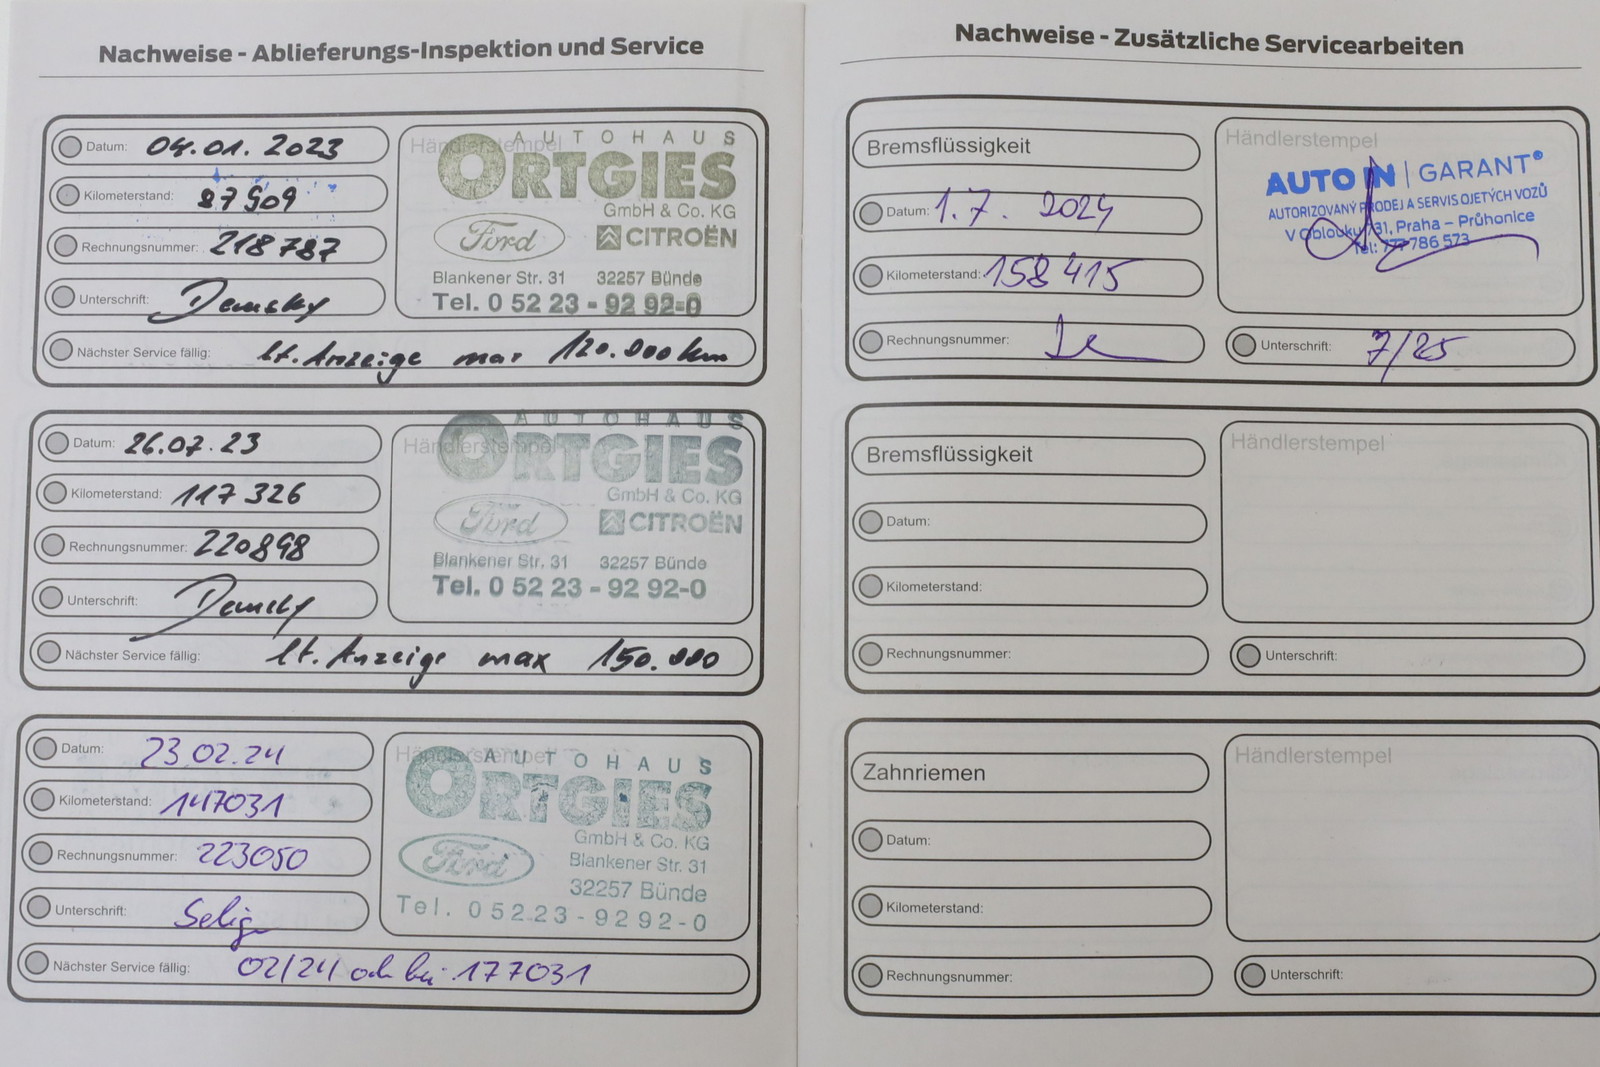 Nachweise - Ablieferungs-Inspektion und Service
Datum: 04.01.2023
Kilometerstand: 87509
Rechnungsnummer: 218787
Unterschrift: Demsky
Nächster Service fällig: lt. Anzeige max 120.000 km
Händlerstempel
AUTOHAUS
ORTGIES
GmbH & Co. KG
Ford CITROËN
Blankener Str. 31 32257 Bünde
Tel. 0 52 23 - 92 92-0
Datum: 26.07.23
Kilometerstand: 117 326
Rechnungsnummer: 220898
Unterschrift:
Nächster Service fällig: lt. Anzeige max 150.000
Händlerstempel
AUTOHAUS
ORTGIES
GmbH & Co. KG
Ford CITROËN
Blankener Str. 31 32257 Bünde
Tel. 0 52 23 - 92 92-0
Datum: 23.02.24
Kilometerstand: 147031
Rechnungsnummer: 223050
Unterschrift:
Nächster Service fällig: 02/24 od. bei 177031
Händlerstempel
AUTOHAUS
ORTGIES
GmbH & Co. KG
Ford
Blankener Str. 31
32257 Bünde
Tel. 05223-9292-0
Nachweise - Zusätzliche Servicearbeiten
Bremsflüssigkeit
Datum: 1.7. 2024
Kilometerstand: 158415
Rechnungsnummer:
Händlerstempel
AUTO IN | GARANT®
AUTORIZOVANÝ PRODEJ A SERVIS OJETÝCH VOZŮ
V Oblouku 731, Praha – Průhonice
Tel: 777 786 573
Unterschrift: 7/25
Bremsflüssigkeit
Datum:
Kilometerstand:
Rechnungsnummer:
Händlerstempel
Unterschrift:
Zahnriemen
Datum:
Kilometerstand:
Rechnungsnummer:
Händlerstempel
Unterschrift: